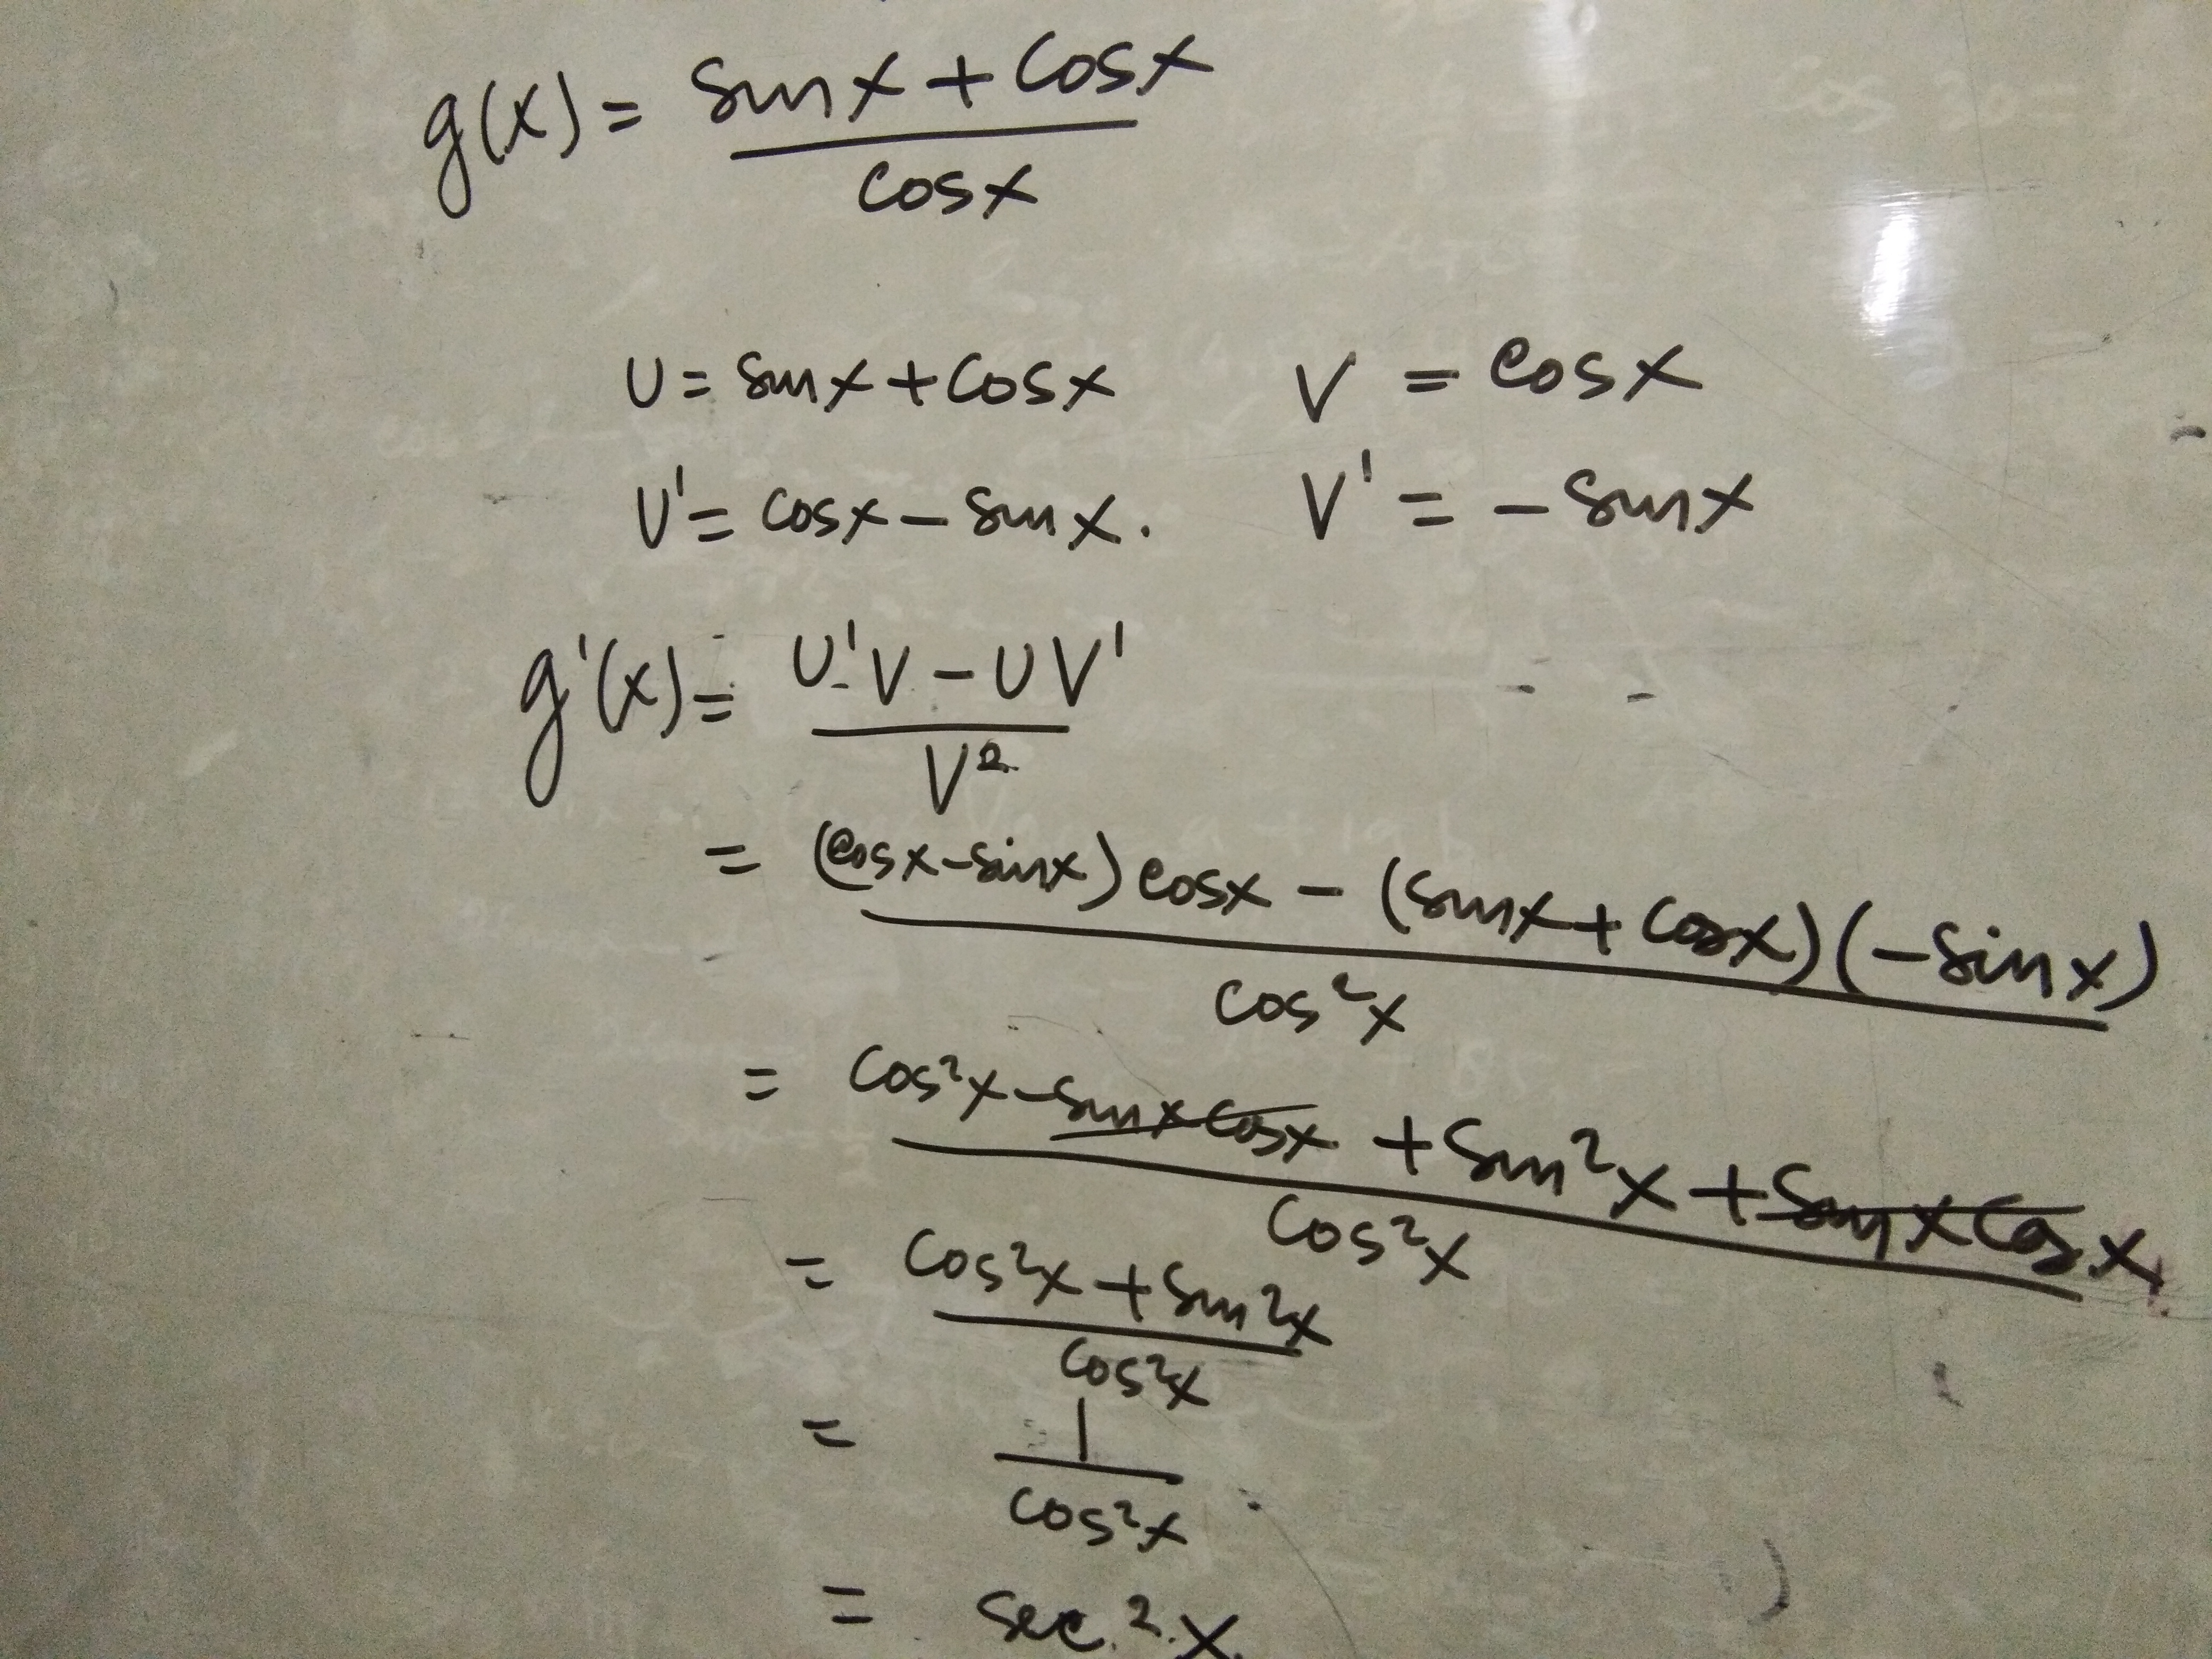 g(x) = sinx + cosx
cosx
U = sinx + cosx V = cosx
U' = cosx - sinx. V' = - sinx
g'(x) = U'V - UV'
V²
= (cosx - sinx) cosx - (sinx + cosx)(-sinx)
cos²x
= cos²x - sinx cosx + sin²x + sinx cosx
cos²x
= cos²x + sin²x
cos²x
= 1
cos²x
= sec²x.